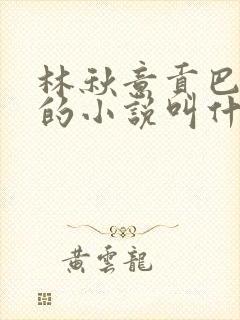 林秋意貢巴
的小說叫什
黃雲龍